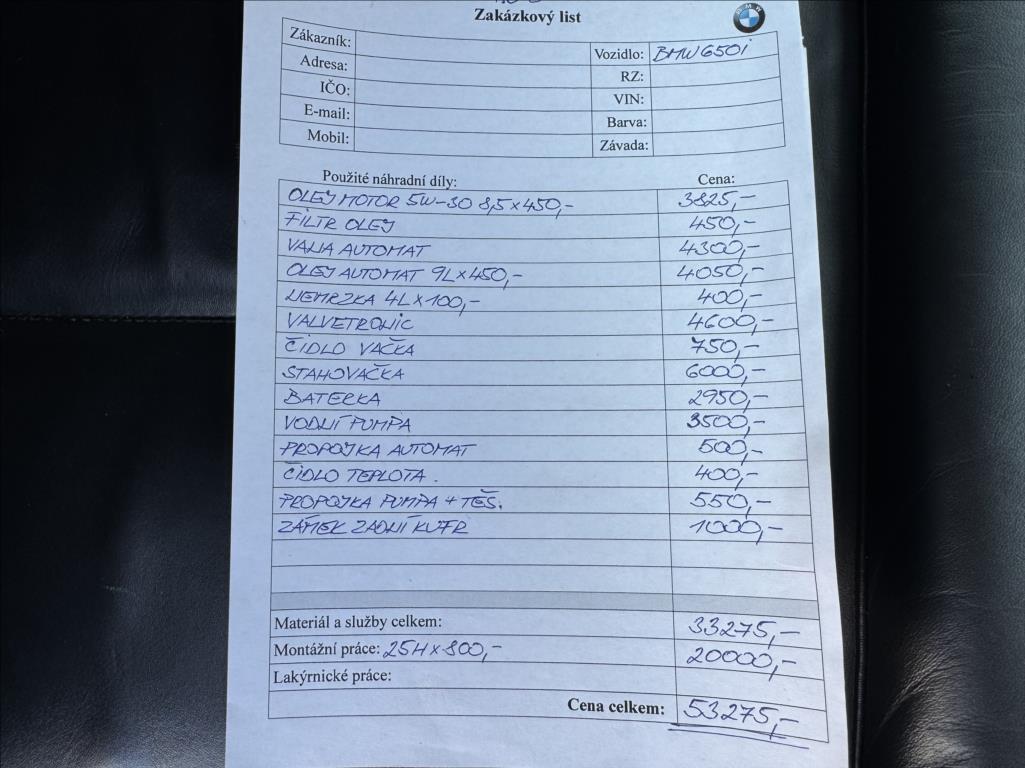 Zakázkový list
BMW
Zákazník:
Adresa:
IČO:
E-mail:
Mobil:
Vozidlo: BMW 650i
RZ:
VIN:
Barva:
Závada:
Použité náhradní díly: Cena:
OLEJ MOTOR 5W-30 8,5×450,- 3825,-
FILTR OLEJ 450,-
VANA AUTOMAT 4300,-
OLEJ AUTOMAT 9L×450,- 4050,-
NEMRZKA 4L×100,- 400,-
VALVETRONIC 4600,-
ČIDLO VAČKA 750,-
STAHOVAČKA 6000,-
BATERKA 2950,-
VODNÍ PUMPA 3500,-
PROPOJKA AUTOMAT 500,-
ČIDLO TEPLOTA. 400,-
PROPOJKA PUMPA + TĚS. 550,-
ZÁMEK ZADNÍ KUFR 1000,-
Materiál a služby celkem: 33275,-
Montážní práce: 25H×800,- 20000,-
Lakýrnické práce:
Cena celkem: 53275,-